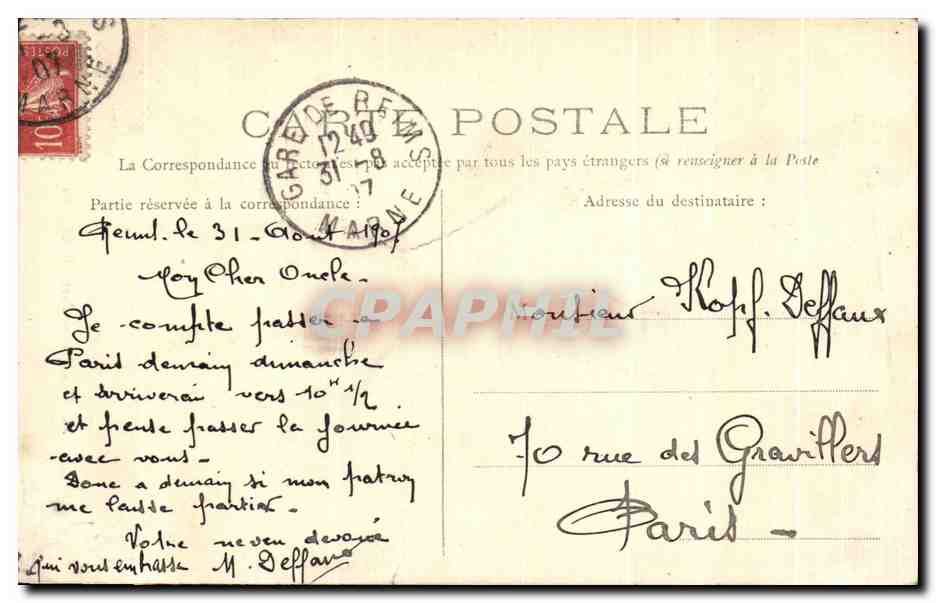 CARTE POSTALE
La Correspondance au recto n'est pas acceptée par tous les pays étrangers (si renseigner à la Poste
Partie réservée à la correspondance :
Adresse du destinataire :
GARE DE REIMS
12 40
31 - 8
07
MARNE
07
MARNE
POSTES
10
CPAPHIL
le 31 - Août 1907
Mon Cher Oncle -
Je compte passer a
Paris demain dimanche
et arriverai vers 10 H 1/2
et pense passer la journée
avec vous -
Donc a demain si mon patron
me laisse partir -
Votre neveu dévoué
qui vous embrasse M. Deffaux
Monsieur Kopf. Deffaux
70 rue des Gravillers
Paris -